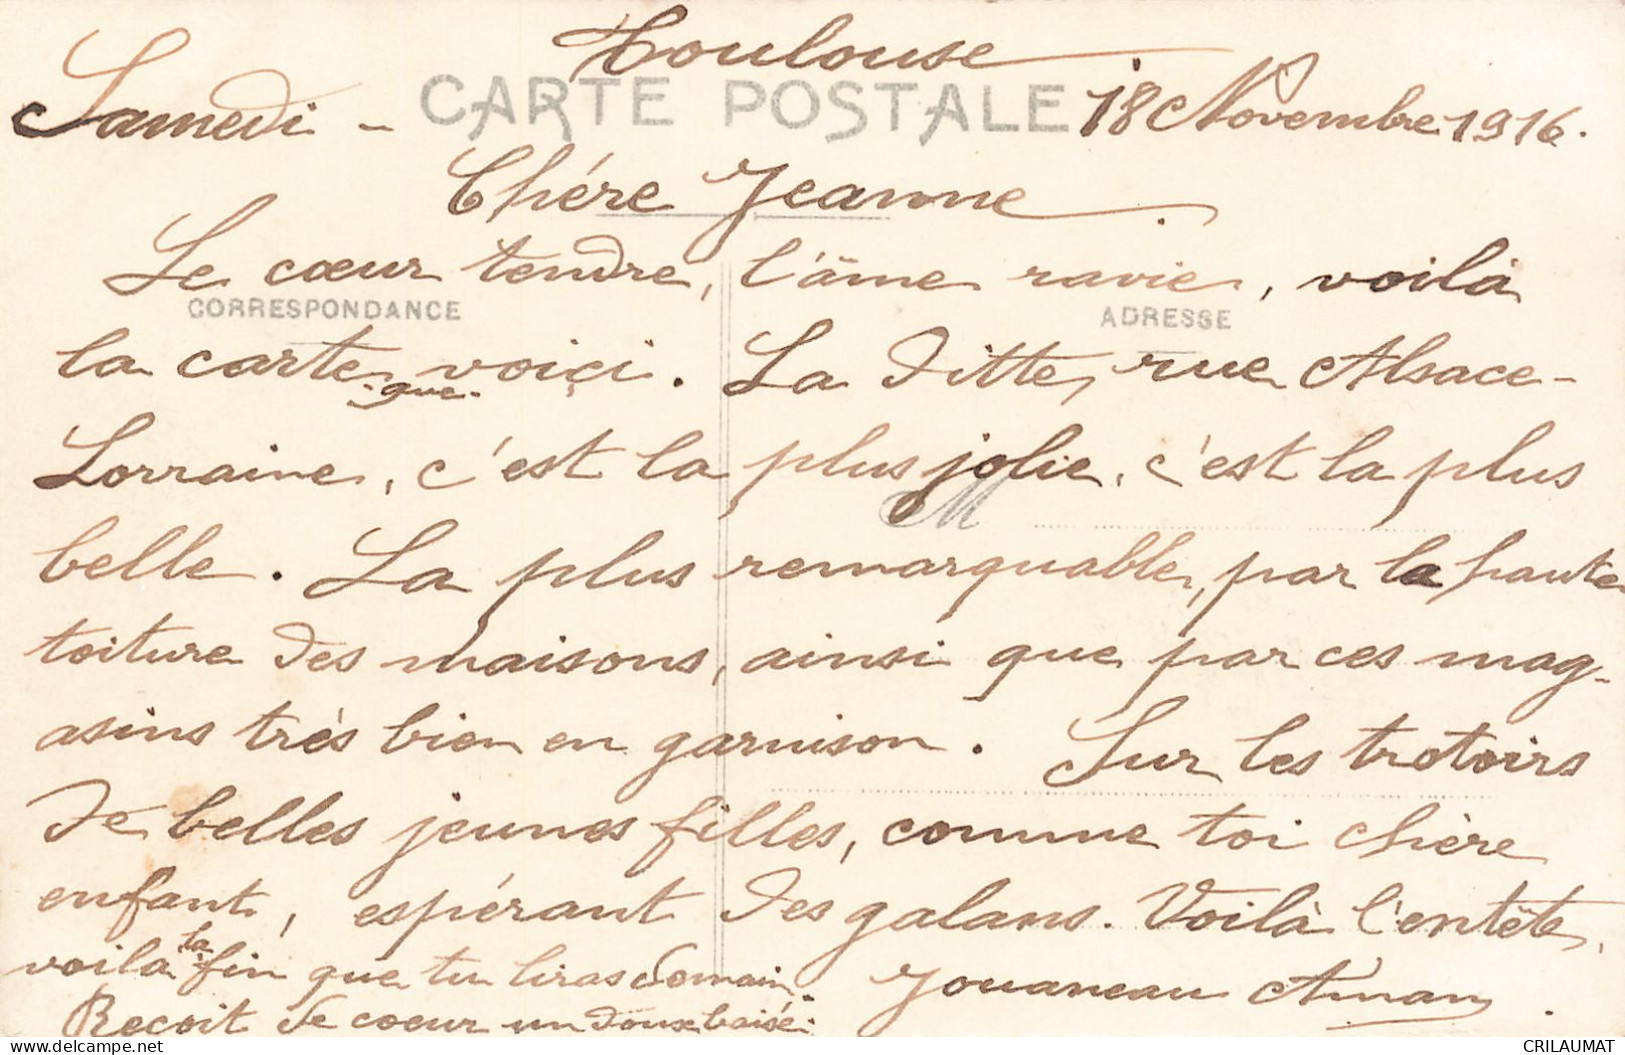 Toulouse
Samedi - CARTE POSTALE 18 Novembre 1916.
Chére Jeanne.
Le cœur tendre, l'âme ravie, voilà
CORRESPONDANCE ADRESSE
la carte que voiçi. La ditte, rue Alsace-
Lorraine, c'est la plus jolie, c'est la plus
M
belle. La plus remarquable, par la haute
toiture des maisons, ainsi que par ces mag-
asins très bien en garnison. Sur les trotoirs
de belles jeunes filles, comme toi chère
enfant, espérant des galans. Voilà l'entête,
voila la fin que tu liras demain Jouaneau
Recoit de coeur un doux baisé.
CRILAUMAT